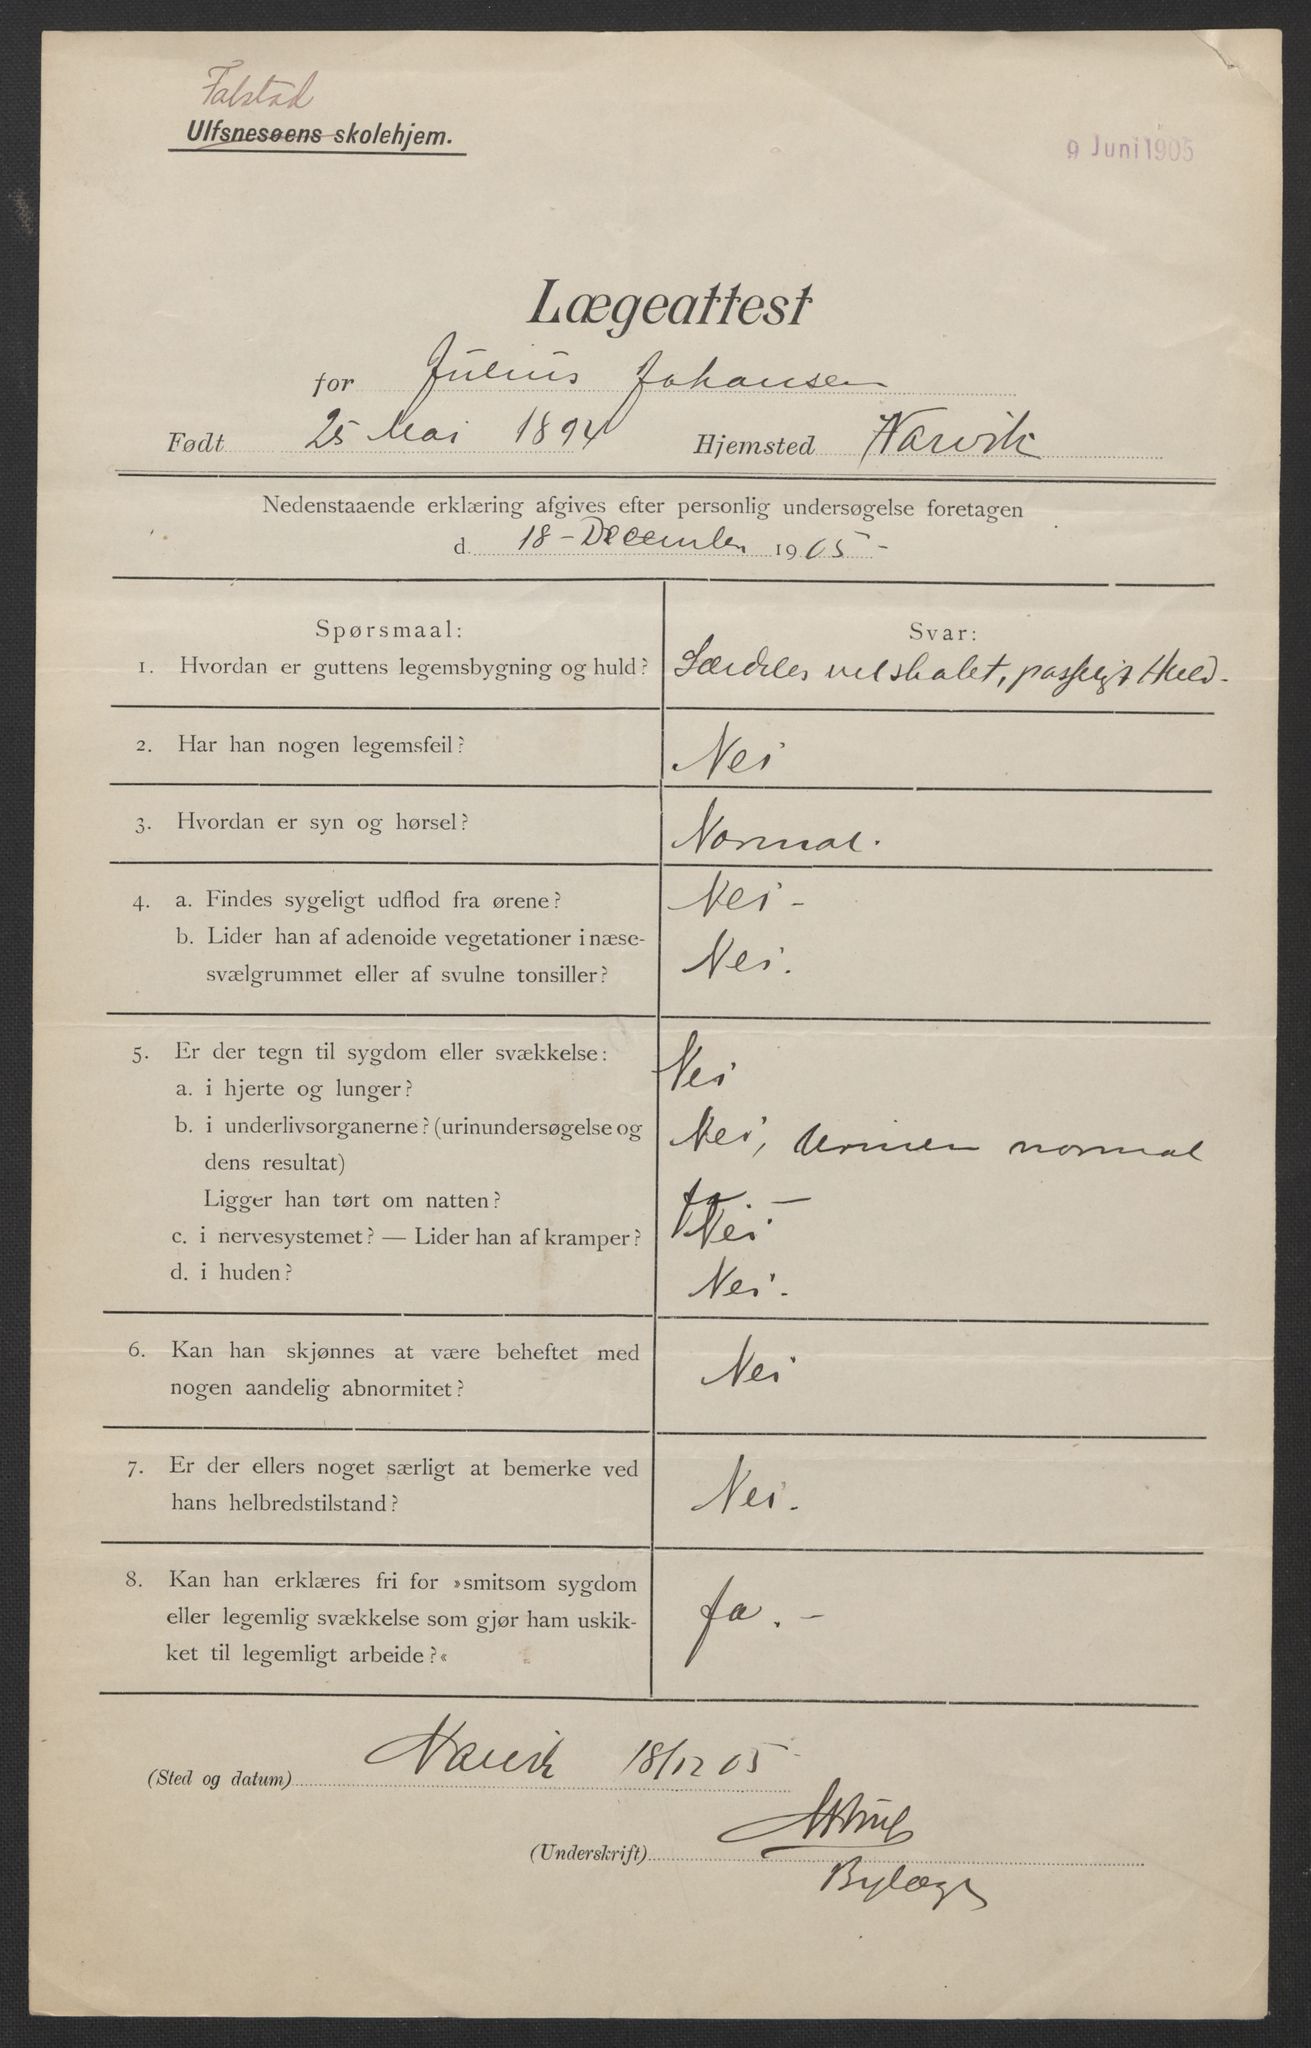 Falstad
Ulfsnesøens skolehjem.
9 Juni 1905
Lægeattest
for Julius Johansen
Født 25 Mai 1894 Hjemsted Narvik
Nedenstaaende erklæring afgives efter personlig undersøgelse foretagen
d. 18 - December 1905 -
Spørsmaal: Svar:
1. Hvordan er guttens legemsbygning og huld? Særdeles velskabt, passeligt Huld -
2. Har han nogen legemsfeil? Nei
3. Hvordan er syn og hørsel? Normal.
4. a. Findes sygeligt udflod fra ørene? Nei -
b. Lider han af adenoide vegetationer i næse-
svælgrummet eller af svulne tonsiller? Nei.
5. Er der tegn til sygdom eller svækkelse:
a. i hjerte og lunger? Nei
b. i underlivsorganerne? (urinundersøgelse og Nei, Urinen normal
dens resultat)
Ligger han tørt om natten? Ja -
c. i nervesystemet? — Lider han af kramper? Nei
d. i huden? Nei.
6. Kan han skjønnes at være beheftet med
nogen aandelig abnormitet? Nei
7. Er der ellers noget særligt at bemerke ved
hans helbredstilstand? Nei.
8. Kan han erklæres fri for »smitsom sygdom
eller legemlig svækkelse som gjør ham uskik-
ket til legemligt arbeide?« Ja. -
(Sted og datum) Narvik 18/12 05
(Underskrift)
Bylæge